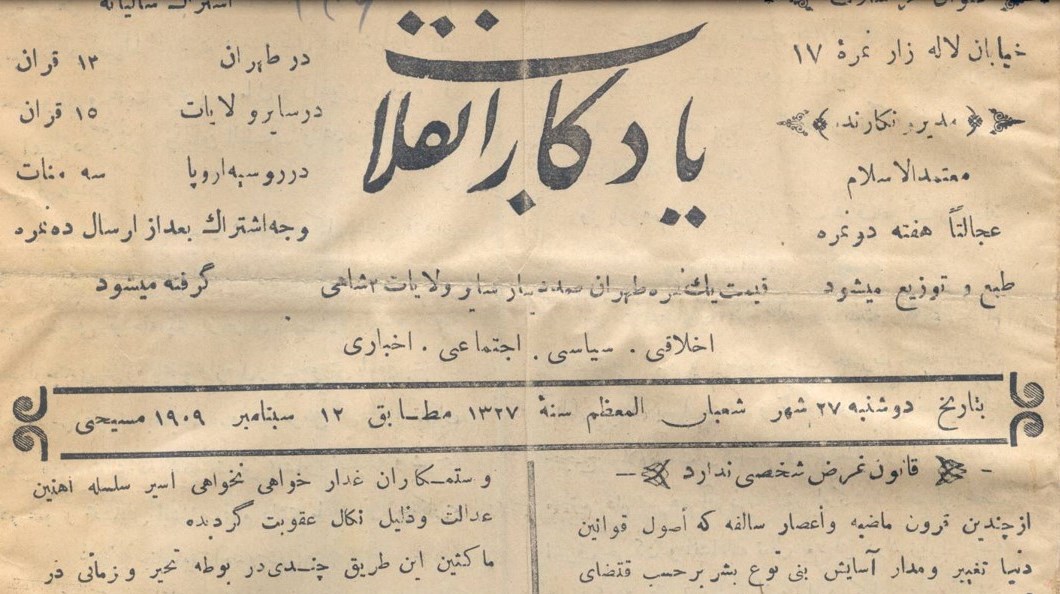 خیابان لاله زار نمرهٔ ۱۷
مدیر و نکارنده
معتمدالاسلام
عجالتاً هفته دو نمره
طبع و توزیع میشود
یادکار انقلاب
اشتراك سالیانه
در طهران ۱۲ قران
در سایر و لایات ۱۵ قران
در روسیه اروپا سه منات
وجه اشتراك بعد از ارسال ده نمره
گرفته میشود
قیمت یك نمره طهران سایر ولایات ۳ شاهی
اخلاقی . سیاسی . اجتماعی . اخباری
بتاریخ دوشنبه ۲۷ شهر شعبان المعظم سنهٔ ۱۳۲۷ مطـابق ۱۲ سبتامبر ۱۹۰۹ مسیحی
قانون غرض شخصی ندارد
از چندین قرون ماضیه و أعصار سالفه که أصول قوانین
دنیا تغییر و مدار آسایش بنی نوع بشر بر حسب قتضای
و ستمـکاران غدار خواهی نخواهی اسیر سلسله آهنین
عدالت و ذلیل نکال عقوبت گردیده
ما کثین این طریق چنـدی در بوطه تحیر و زمانی در